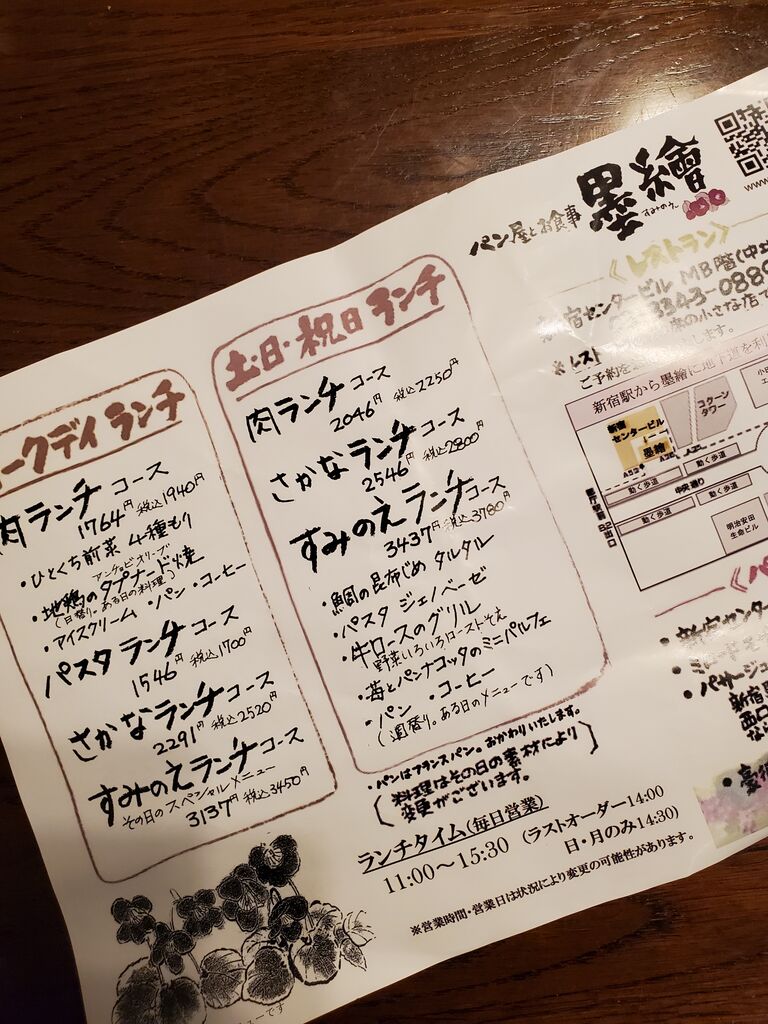 パン屋とお食事 墨繪
すみのえ
www.
《レストラン》
宿センタービル MB階(中
3343-0889
の小さな店で
※レスト
ご予約を します。
新宿駅から墨繪に地下道を利
新宿
センタービル
墨繪
コクーン
タワー
動く歩道
動く歩道
中央通り
動く歩道
動く歩道
都庁前駅 B2出口
明治安田
生命ビル
・新宿センタ
・パサージュ
新宿
西口
土・日・祝日 ランチ
肉ランチコース
2046円 税込2250円
さかなランチコース
2546円 税込2800円
すみのえランチコース
3437円 税込3780円
・鯛の昆布じめ タルタル
・パスタ ジェノベーゼ
・牛ロースのグリル
野菜いろいろローストそえ
・苺とパンナコッタのミニパルフェ
・パン ・コーヒー
(週替り。ある日のメニューです)
ークデイ ランチ
肉ランチコース
1764円 税込1940円
・ひとくち前菜 4種もり
アンチョビオリーブ
・地鶏のタプナード焼
(日替り。ある日の料理)
・アイスクリーム ・パン ・コーヒー
パスタランチコース
1546円 税込1700円
さかなランチコース
2291円 税込2520円
すみのえランチコース
その日のスペシャルメニュー
3137円 税込3450円
・パンはフランスパン。おかわりいたします。
(料理はその日の素材により
変更がございます。)
ランチタイム(毎日営業)
11:00～15:30 (ラストオーダー14:00
日・月のみ14:30)
※営業時間・営業日は状況により変更の可能性があります。
ューです